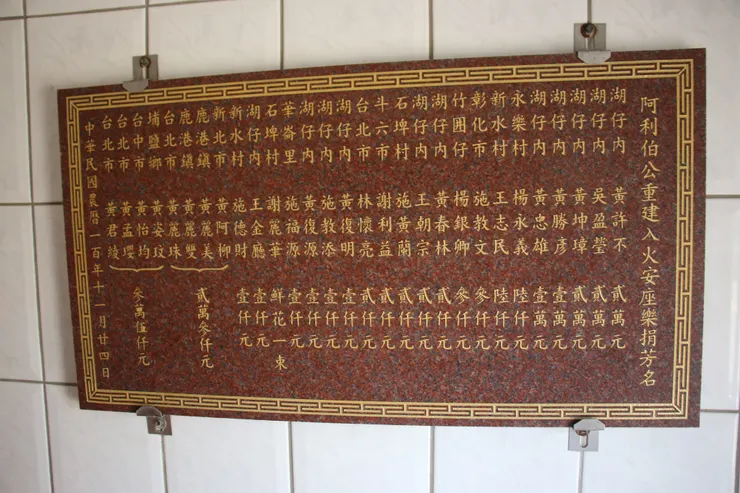 阿利伯公重建入火安座樂捐芳名
湖仔內 黃許不 貳萬元
湖仔內 吳盈瑩 貳萬元
湖仔內 黃坤璋 貳萬元
湖仔內 黃勝彥 壹萬元
湖仔內 黃忠雄 壹萬元
永樂村 楊永義 陸仟元
新水村 王志民 陸仟元
彰化市 施教文 參仟元
竹圍仔 楊銀卿 參仟元
湖仔內 黃春林 貳仟元
湖仔內 王朝宗 貳仟元
石埤村 施黃蘭 貳仟元
斗六市 謝利益 貳仟元
台北市 林懷亮 貳仟元
湖仔內 黃復明 壹仟元
湖仔內 施教添 壹仟元
湖仔內 黃復源 壹仟元
華崙里 施福源 壹仟元
石埤村 謝麗華 鮮花一束
湖仔內 王金廳 壹仟元
新水村 施德財 壹仟元
新北市 黃阿柳
鹿港鎮 黃麗美
鹿港鎮 黃麗雙
台北市 黃麗珠
貳萬參仟元
埔鹽鄉 黃姿玟
台中市 黃怡均
台北市 黃孟瓔
台北市 黃君綾
參萬伍仟元
中華民國農曆一百年十一月廿四日